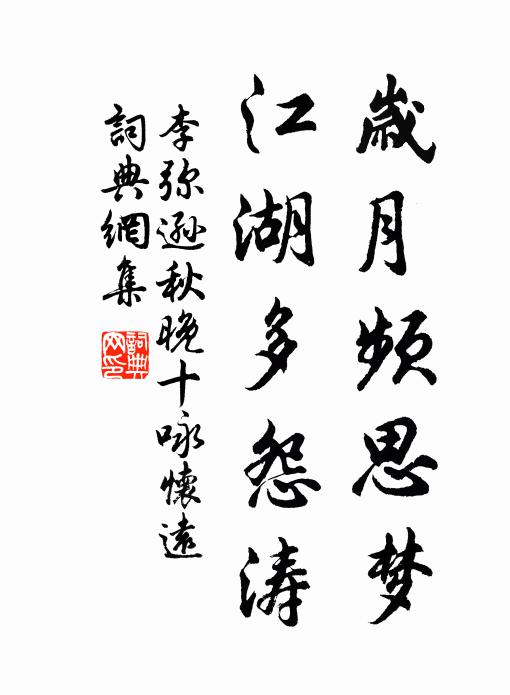 歲月頻思梦
江湖多怨涛
李弥遜秋晚十咏懷遠
詞典網集
詞典
网印